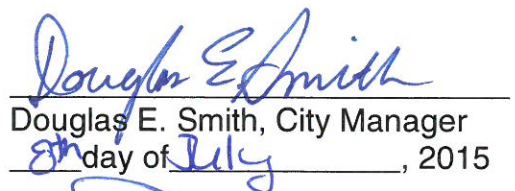 Douglas E Smith
Douglas E. Smith, City Manager
8th day of July, 2015